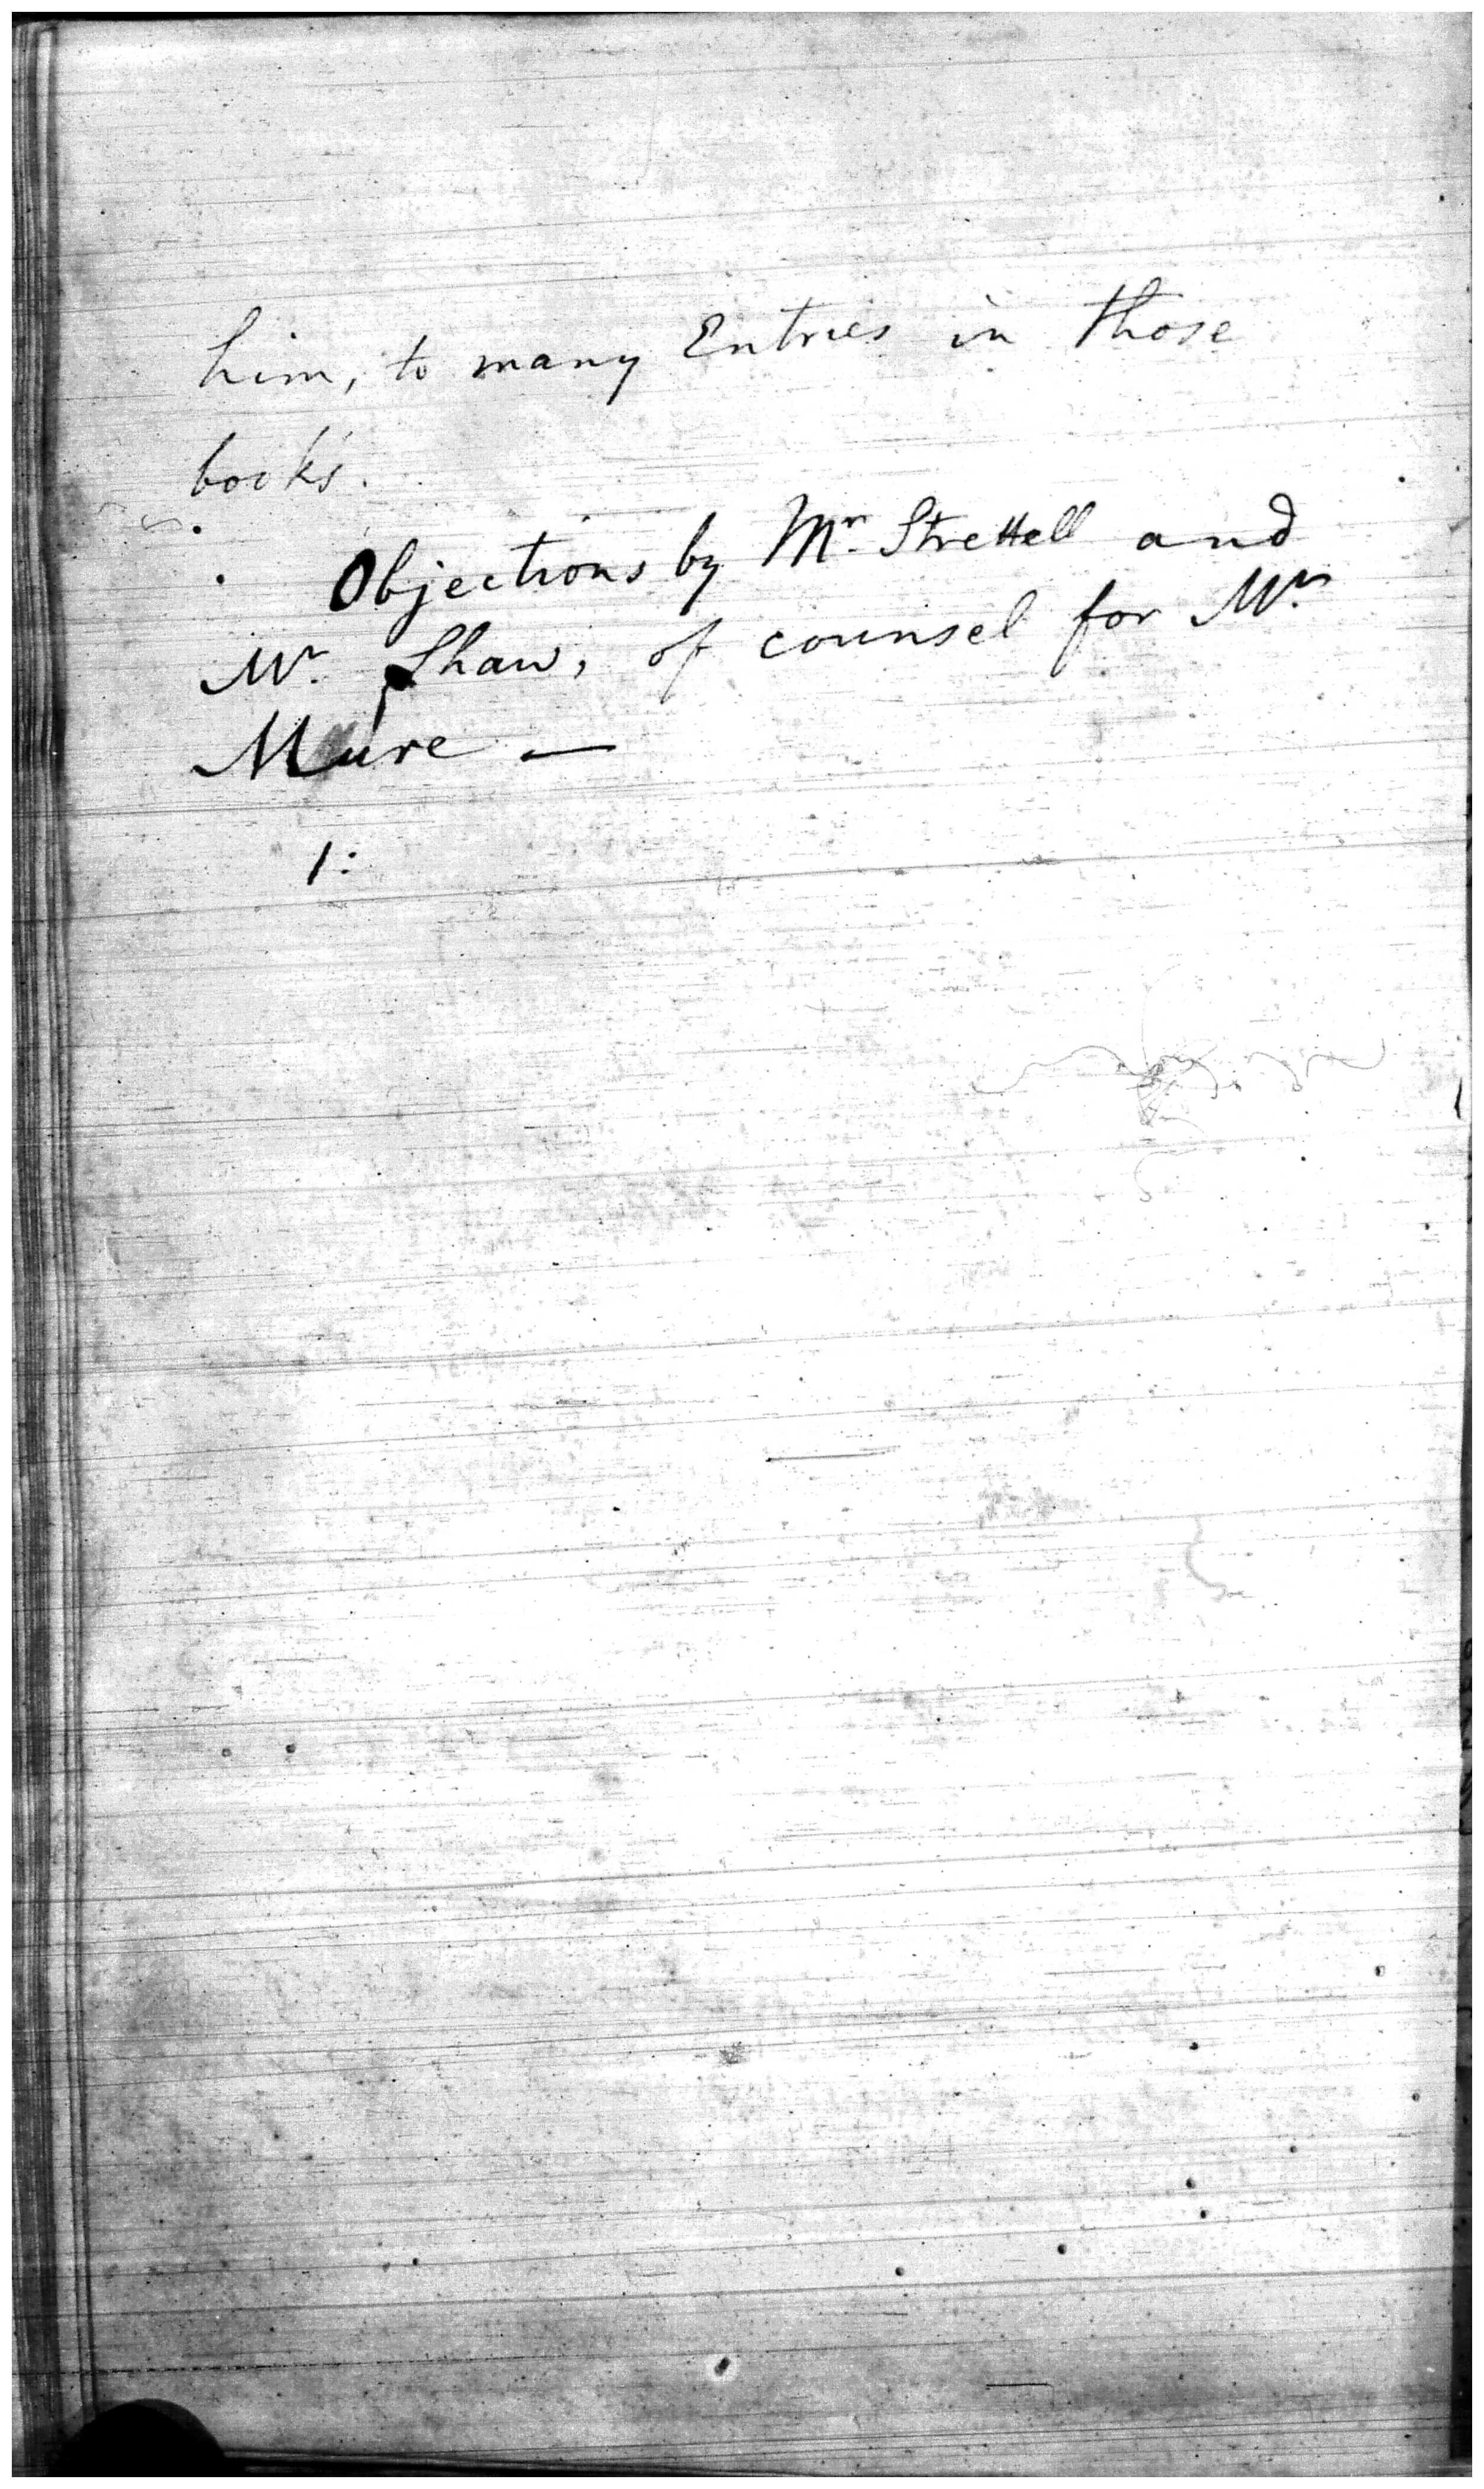 him, to many Entries in those
books.
Objections by Mr. Strettell and
Mr. Shaw, of counsel for Mr.
Mure —
1: